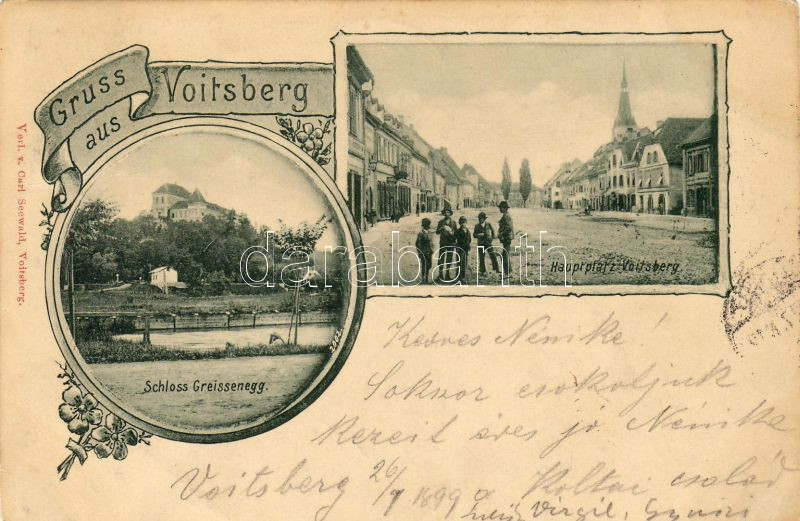 Gruss
aus
Voitsberg
Verl. v. Carl Seewald, Voitsberg.
Schloss Greissenegg.
2802
Hauptplatz-Voitsberg
darabanth
Kedves Nénike!
Sokszor csokoljuk
kezeit édes jó Nénike
Voitsberg 26/7 1899 a Koltai család
Virgil,